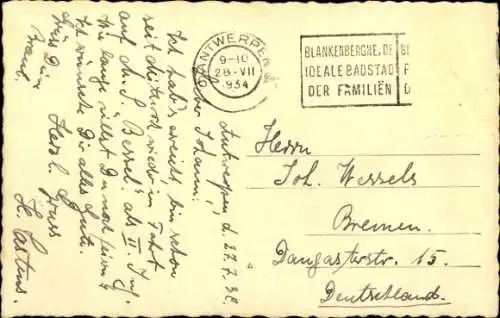 ANTWERPEN
9-10
28-VII
1934
BLANKENBERGHE. DE
IDEALE BADSTAD
DER FAMILIËN
BL
Antwerpen, d. 27.7.34.
Lieber Johann!
Ich hab's erreicht, bin schon
seit wieder in Fahrt
auf M.S. Bessel als II. Ing.
Wie lange willst Du noch
Ich wünsche Dir alles Gute.
Herzl. Gruss
H. Carstens.
Herrn
Joh. Wessels
Bremen.
Dangasterstr. 15.
Deutschland.